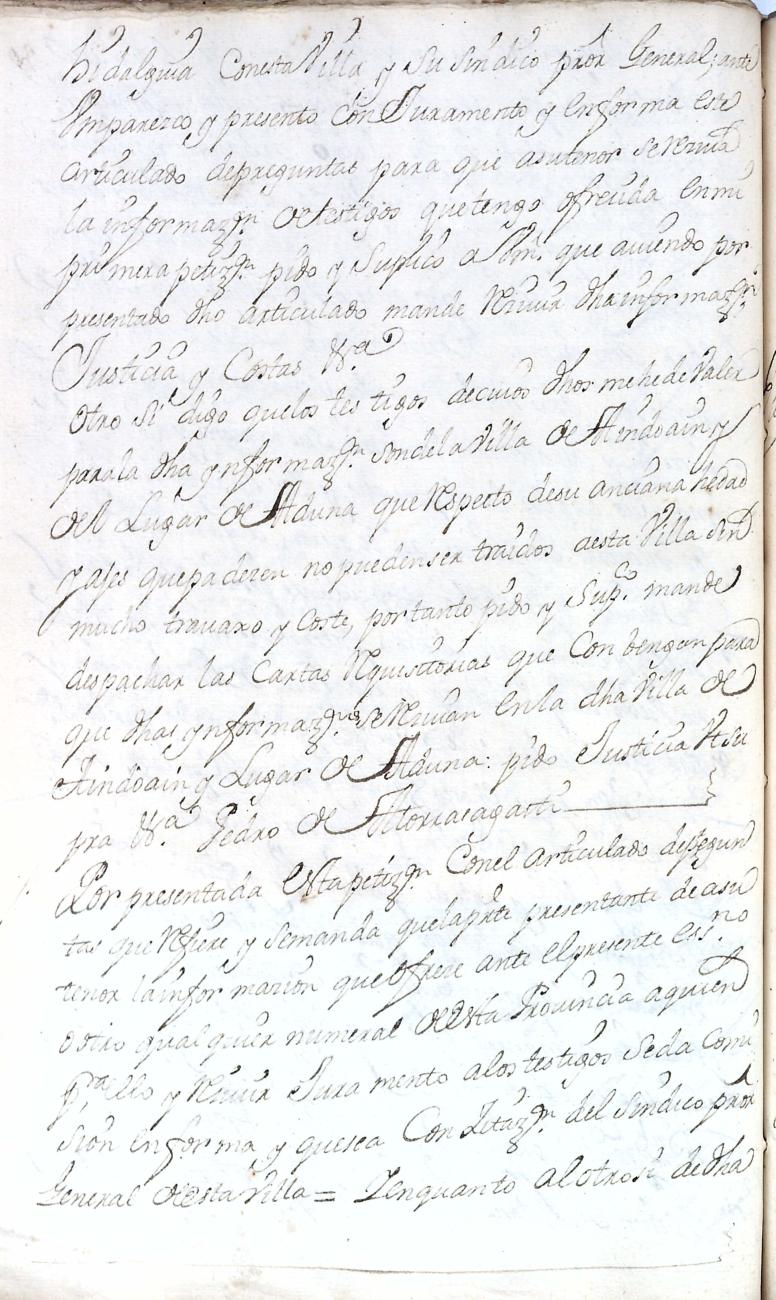 hidalguia Conesta Villa y su sindico pror General; ante
Vmparezco y presento con Juramento y en forma este
articulado de preguntas para que a su tenor se reziva
la informazn de testigos que tengo ofrecida en mi
primera petizn pido y suplico a Vm. que aviendo por
presentado dho articulado mande Rezivir dha informazn
Justicia y Costas &a
Otro si digo quelos testigos decuios dhos mehede Valer
parala dha ynformazn sondela Villa de Aindoain y
del Lugar de Aduna que respecto desu anciana hedad
y ajes quepadezen no puedenser traidos aesta Villa sin
mucho travaxo y coste, portanto pido y Supco mande
despachar las Cartas Requisitorias que Convengan para
que dhas ynformazns se Rezivan enla dha Villa de
Aindoain y Lugar de Aduna: pido Justicia Vt su
pra &a Pedro de Atorrasagasti
Por presentada esta petizn Conel articulado depregun
tas que Refiere y semanda quelaprte presentante de asu
tenor lainformazion que ofreze ante elpresente essno
o otro qualquier numeral de esta Provincia aquien
pa ello y Rezivir Juramento alos testigos seda Comi
sion en forma y quesea Con zitazn del sindico pror
General de esta Villa = Y enquanto alotrosi de dha